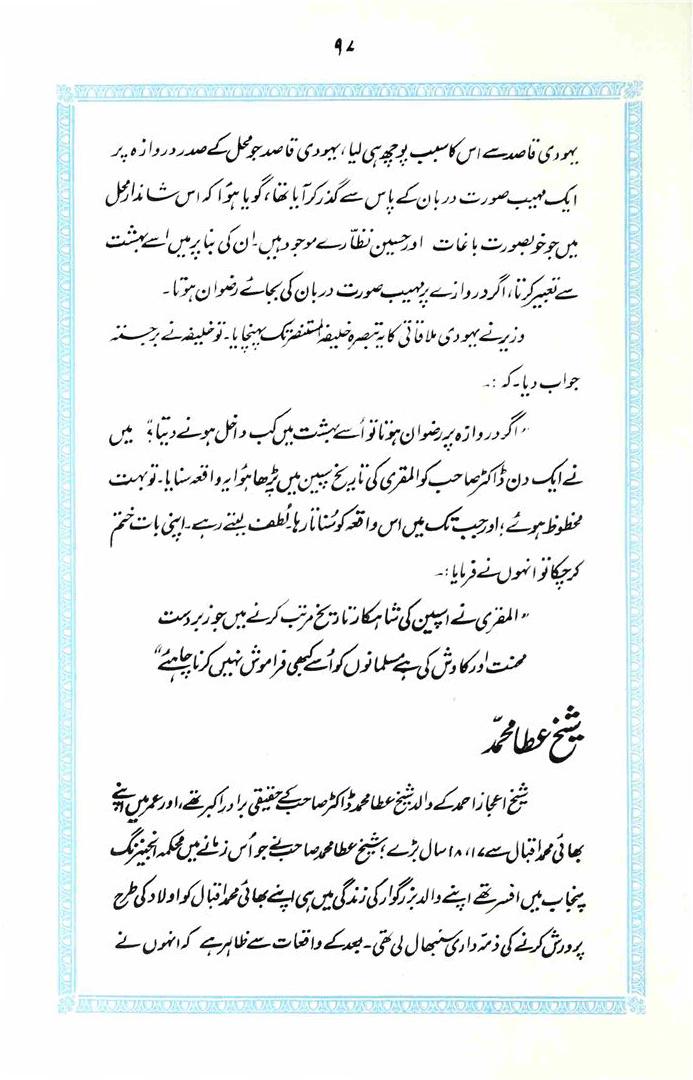 ۹۷
یہودی قاصد سے اس کا سبب پوچھ ہی لیا، یہودی قاصد جو محل کے صدر دروازہ پر
ایک مہیب صورت دربان کے پاس سے گذر کر آیا تھا، گویا ہوا کہ اس شاندار محل
میں جو خوبصورت باغات اور حسین نظّارے موجود ہیں۔ ان کی بنا پر میں اسے بہشت
سے تعبیر کرتا، اگر دروازے پر مہیب صورت دربان کی بجائے رضوان ہوتا۔
وزیر نے یہودی ملاقاتی کا یہ تبصرہ خلیفہ المستنصر تک پہنچایا۔ تو خلیفہ نے برجستہ
جواب دیا۔ کہ :۔
"اگر دروازہ پہ رضوان ہوتا تو اُسے بہشت میں کب داخل ہونے دیتا؟" میں
نے ایک دن ڈاکٹر صاحب کو المقری کی تاریخ سپین میں پڑھا ہوا یہ واقعہ سنایا۔ تو بہت
محظوظ ہوئے؛ اور جب تک میں اس واقعہ کو سُناتا رہا۔ لُطف لیتے رہے۔ اپنی بات ختم
کر چکا تو انہوں نے فرمایا :۔
"المقری نے اسپین کی شاہکار تاریخ مرتب کرنے میں جو زبردست
محنت اور کاوش کی ہے مسلمانوں کو اُسے کبھی فراموش نہیں کرنا چاہئے"
شیخ عطا محمّد
شیخ اعجاز احمد کے والد شیخ عطا محمد ڈاکٹر صاحب کے حقیقی برادر اکبر تھے، اور عمر میں اپنے
بھائی محمد اقبال سے ۱۷، ۱۸ سال بڑے؛ شیخ عطا محمد صاحب نے جو اُس زمانے میں محکمہ انجینئرنگ
پنجاب میں افسر تھے اپنے والد بزرگوار کی زندگی میں ہی اپنے بھائی محمد اقبال کو اولاد کی طرح
پرورش کرنے کی ذمہ داری سنبھال لی تھی۔ بعد کے واقعات سے ظاہر ہے کہ انہوں نے